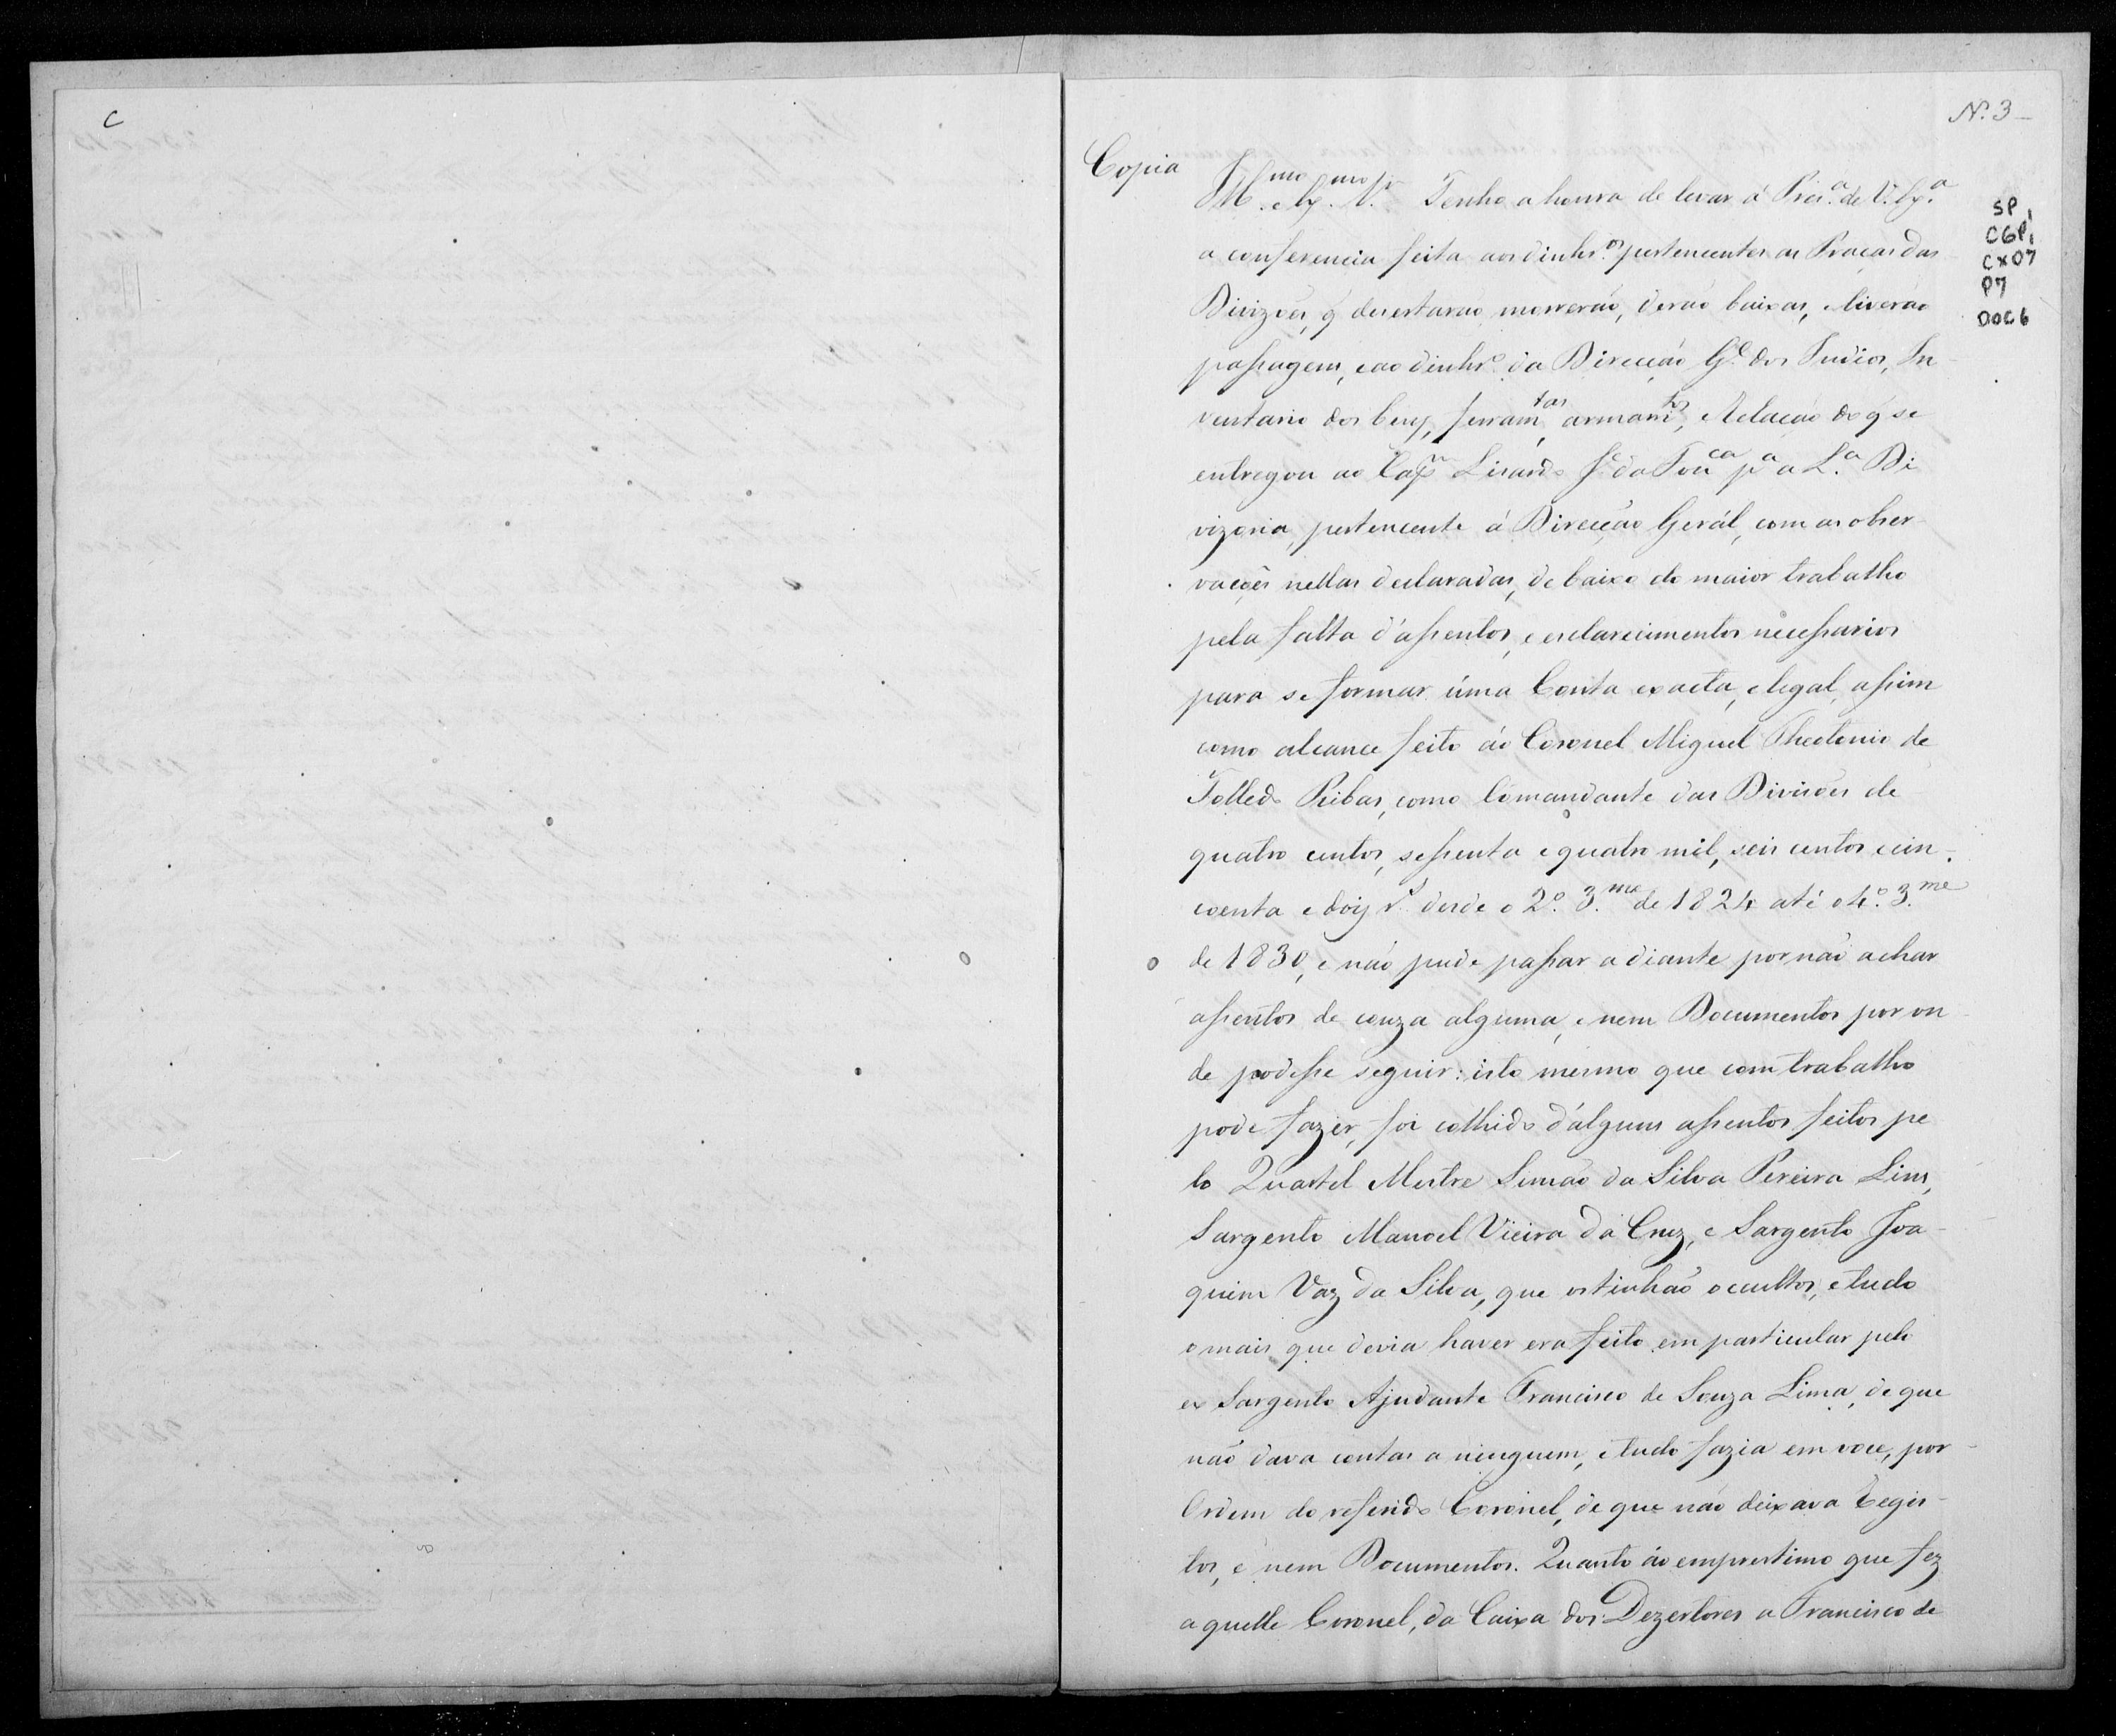 C
N. 3
Copia
Ill.mo e Ex.mo Sr. Tenho a honra de levar á Pres.a de V. Ex.a
a conferencia feita aos dinhr.os pertencentes as Praças das
Divizões, q̃ desertarão, morrerão, derão baixas, e tiverão
passagem, e ao dinhr.o da Direcção G.l dos Indios, In
ventario dos bens, ferram.tas, armam.tos, e Relação do q̃ se
entregou ao Cap.m Lizardo J.e da Fon.ca p.a a L.a Di
vizoria, pertencente á Direcção Geràl, com as obser-
vações nellas declaradas, debaixo do maior trabalho
pela falta d'assentos, e esclarecimentos necessarios
para se formar uma Conta exacta, e legal, assim
como alcance feito áo Coronel Miguel Theotonio de
Tolledo Ribas, como Comandante das Divisões de
quatro centos, sessenta e quatro mil, seis centos e cin-
coenta e dois r.s desde o 2.o 3.me de 1824 até o 4.o 3.me
de 1830, e não pude passar adiante por não achar
assentos de couza alguma, e nem Documentos por on
de podesse seguir: isto mesmo que com trabalho
pode fazer, foi colhido d'alguns assentos feitos pe
lo Quartel Mestre Simão da Silva Pereira Lins,
Sargento Manoel Vieira da Cruz, e Sargento Joa-
quim Vaz da Silva, que os tinhão occultos, e tudo
o mais que devia haver era feito em particular pelo
ex Sargento Ajudante Francisco de Souza Lima, de que
não dava contas a ninguem, e tudo fazia em voce, por
Ordem do referido Coronel, de que não deixava Regis-
tos, e nem Documentos. Quanto áo emprestimo que fez
aquelle Coronel, da Caixa dos Dezertores a Francisco de
SP,
CGP,
CX07
P7
DOC6